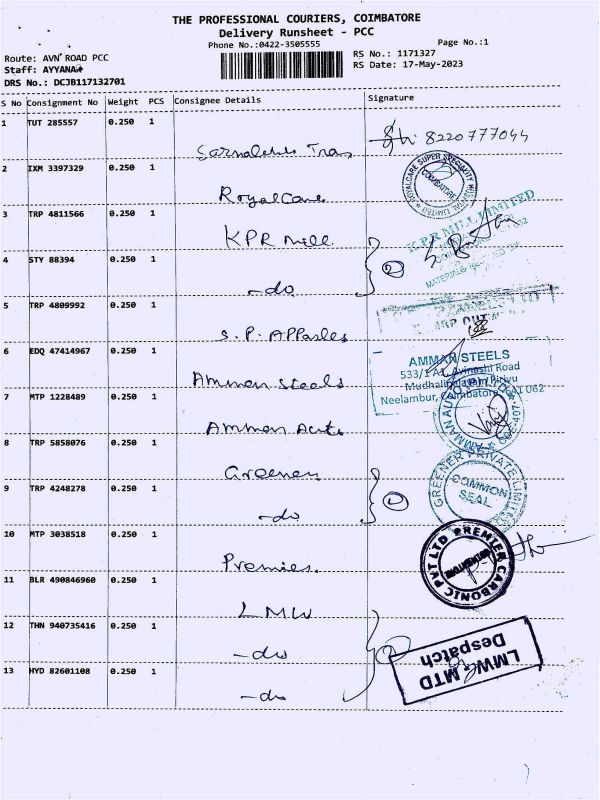 THE PROFESSIONAL COURIERS, COIMBATORE
Delivery Runsheet - PCC
Phone No.:0422-3505555
Page No.:1
Route: AVN ROAD PCC
RS No.: 1171327
Staff: AYYANAR
RS Date: 17-May-2023
DRS No.: DCJB117132701
S No Consignment No Weight PCS Consignee Details Signature
1 TUT 285557 0.250 1
8220777044
2 IXM 3397329 0.250 1
ROYALCARE SUPER SPECIALITY HOSPITAL LIMITED
COIMBATORE
RoyalCare
3 TRP 4811566 0.250 1
K.P.R MILL LIMITED
KPR Mill
4 STY 88394 0.250 1
2
-do
5 TRP 4809992 0.250 1
S.P. APParles
6 EDQ 47414967 0.250 1
AMMAN STEELS
533/1 A1, Avinashi Road
Mudhalipalayam Pirivu
Neelambur, Coimbatore - 641 062
Amman Steels
7 MTP 1228489 0.250 1
Amman Auto
8 TRP 5858076 0.250 1
GREENER PRIVATE LIMITED
COMMON
SEAL
Greener
9 TRP 4248278 0.250 1
-do
10 MTP 3038518 0.250 1
PREMIER CARBONIC PVT LTD
Premier
11 BLR 490846960 0.250 1
LMW
12 THN 940735416 0.250 1
-do
LMW-MTD
Despatch
13 HYD 82601108 0.250 1
-do